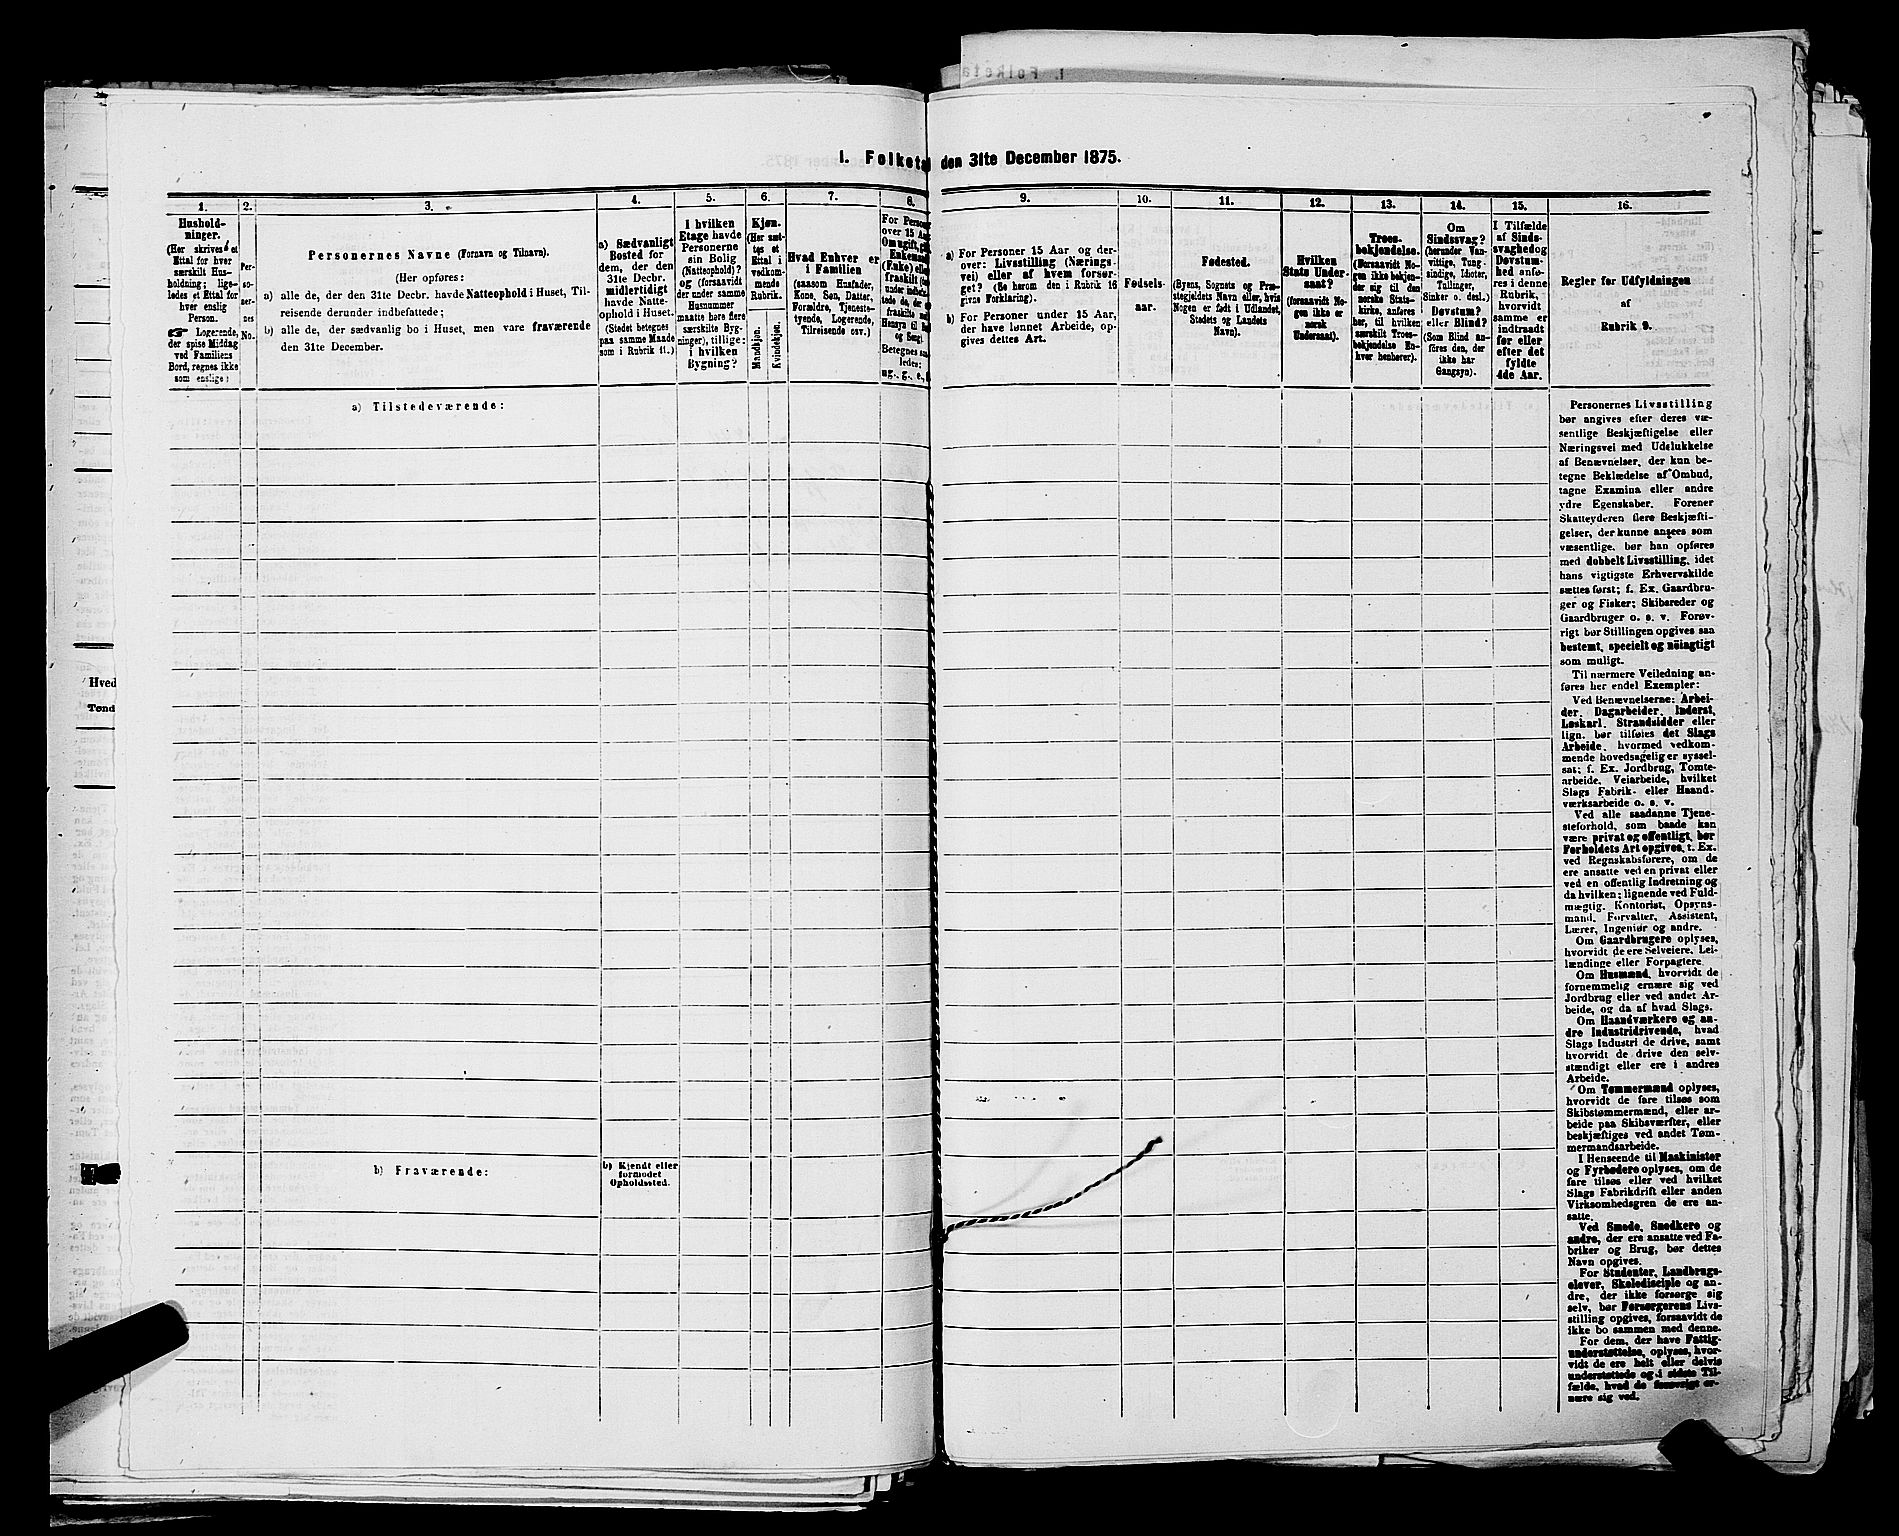 1. Folketal den 31te December 1875.
1.
Hushold-
ninger.
(Her skrives et
Ettal for hver
særskilt Hus-
holdning; lige-
ledes et Ettal for
hver enslig
Person.
☞ Logerende,
der spise Middag
ved Familiens
Bord, regnes ikke
som enslige)
2.
Per-
so-
ner-
nes
No.
3.
Personernes Navne (Fornavn og Tilnavn).
(Her opføres:
a) alle de, der den 31te Decbr. havde Natteophold i Huset, Til-
reisende derunder indbefattede;
b) alle de, der sædvanlig bo i Huset, men vare fraværende
den 31te December.
4.
a) Sædvanligt
Bosted for
dem, der den
31te Decbr.
midlertidigt
havde Natte-
ophold i Huset.
(Stedet betegnes
paa samme Maade
som i Rubrik 11.)
5.
I hvilken
Etage havde
Personerne
sin Bolig
(Natteophold)?
og (forsaavidt
der under samme
Husnummer
maatte høre flere
særskilte Byg-
ninger), tillige:
i hvilken
Bygning?
6.
Kjøn.
(Her sæt-
tes et
Ettal i
vedkom-
mende
Rubrik.
Mandkjøn.
Kvindekjøn.
7.
Hvad Enhver er
i Familien
(saasom Husfader,
Kone, Søn, Datter,
Forældre, Tjeneste-
tyende, Logerende,
Tilreisende osv.)
8.
For Person
over 15 Aa
Om ugift,
Enkema
(Enke) elle
fraskilt
under
tede de, de
fraskilte
Hensyn til
og Seng).
Betegnes saa
ledes:
ug., g., e.,
9.
a) For Personer 15 Aar og der-
over: Livsstilling (Nærings-
vei) eller af hvem forsør-
get? (Se herom den i Rubrik 16
givne Forklaring).
b) For Personer under 15 Aar,
der have lønnet Arbeide, op-
gives dettes Art.
10.
Fødsels-
aar.
11.
Fødested.
(Byens, Sognets og Præ-
stegjeldets Navn eller, hvis
Nogen er født i Udlandet,
Stedets og Landets
Navn).
12.
Hvilken
Stats Under-
saat?
(forsaavidt No-
gen ikke er
norsk
Undersaat).
13.
Troes-
bekjendelse.
(Forsaavidt No-
gen ikke bekjen-
der sig til den
norske Stats-
kirke, anføres
her, til hvilken
særskilt Troes-
bekjendelse En-
hver henhører).
14.
Om
Sindssvag?
(herunder Van-
vittige, Tung-
sindige, Idioter,
Tullinger,
Sinker o. desl.)
Døvstum?
eller Blind?
(Som Blind an-
føres den, der
ikke har
Gangsyn).
15.
I Tilfælde
af Sinds-
svaghed og
Døvstum-
hed anfø-
res i denne
Rubrik,
hvorvidt
samme er
indtraadt
før eller
efter det
fyldte
4de Aar.
16.
Regler for Udfyldningen
af
Rubrik 9.
a) Tilstedeværende:
Personernes Livsstilling
bør angives efter deres væ-
sentlige Beskjæftigelse eller
Næringsvei med Udslukkelse
af Benævnelser, der kun be-
tegne Beklædelse af Ombud,
tagne Examina eller andre
ydre Egenskaber. Forener
Skatteyderen flere Beskjæfti-
gelser, der kunne ansees som
væsentlige, bør han opføres
med dobbelt Livsstilling, idet
hans vigtigste Erhvervskilde
sættes først; f. Ex. Gaardbru-
ger og Fisker; Skibsreder og
Gaardbruger o. s. v. Forøv-
rigt bør Stillingen opgives saa
bestemt, specielt og nöiagtigt
som muligt.
Til nærmere Veiledning an-
føres her endel Exempler:
Ved Benævnelserne: Arbei-
der, Dagarbeider, Inderst,
Løskarl, Strandsidder eller
lign. bør tilføies det Slags
Arbeide, hvormed vedkom-
mende hovedsagelig er syssel-
sat; f. Ex. Jordbrug, Tomte-
arbeide, Veiarbeide, hvilket
Slags Fabrik- eller Haand-
værksarbeide o. s. v.
Ved alle saadanne Tjene-
steforhold, som baade kan
være privat og offentligt, bør
Forholdets Art opgives, t. Ex.
ved Regnskabsførere, om de
ere ansatte ved en privat eller
ved en offentlig Indretning og
da hvilken; lignende ved Fuld-
mægtig, Kontorist, Opsyns-
mand, Forvalter, Assistent,
Lærer, Ingeniør og andre.
Om Gaardbrugere oplyses,
hvorvidt de ere Selveiere, Lei-
lændinge eller Forpagtere.
Om Husmænd, hvorvidt de
fornemmelig ernære sig ved
Jordbrug eller ved andet Ar-
beide, og da af hvad Slags.
Om Haandværkere og an-
dre Industridrivende, hvad
Slags Industri de drive, samt
hvorvidt de drive den selv-
stændigt eller ere i andres
Arbeide.
Om Tømmermænd oplyses,
hvorvidt de fare tilsøs som
Skibstømmermænd, eller ar-
beide paa Skibsværfter, eller
beskjæftiges ved andet Tøm-
mermandsarbeide.
I Henseende til Maskinister
og Fyrbødere oplyses, om de
fare tilsøs eller ved hvilket
Slags Fabrikdrift eller anden
Virksomhedsgren de ere an-
satte.
Ved Smede, Snedkere og
andre, der ere ansatte ved Fa-
briker og Brug, bør dettes
Navn opgives.
For Studenter, Landbrugs-
elever, Skoledisciple og an-
dre, der ikke forsørge sig
selv, bør Forsørgerens Livs-
stilling opgives, forsaavidt de
ikke bo sammen med denne.
For dem, der have Fattig-
understøttelse, oplyses, hvor-
vidt de ere helt eller delvis
understøttede og i sidste Til-
fælde, hvad de forøvrigt er-
nære sig ved.
b) Fraværende:
b) Kjendt eller
formodet
Opholdssted.
Hved
Tønd